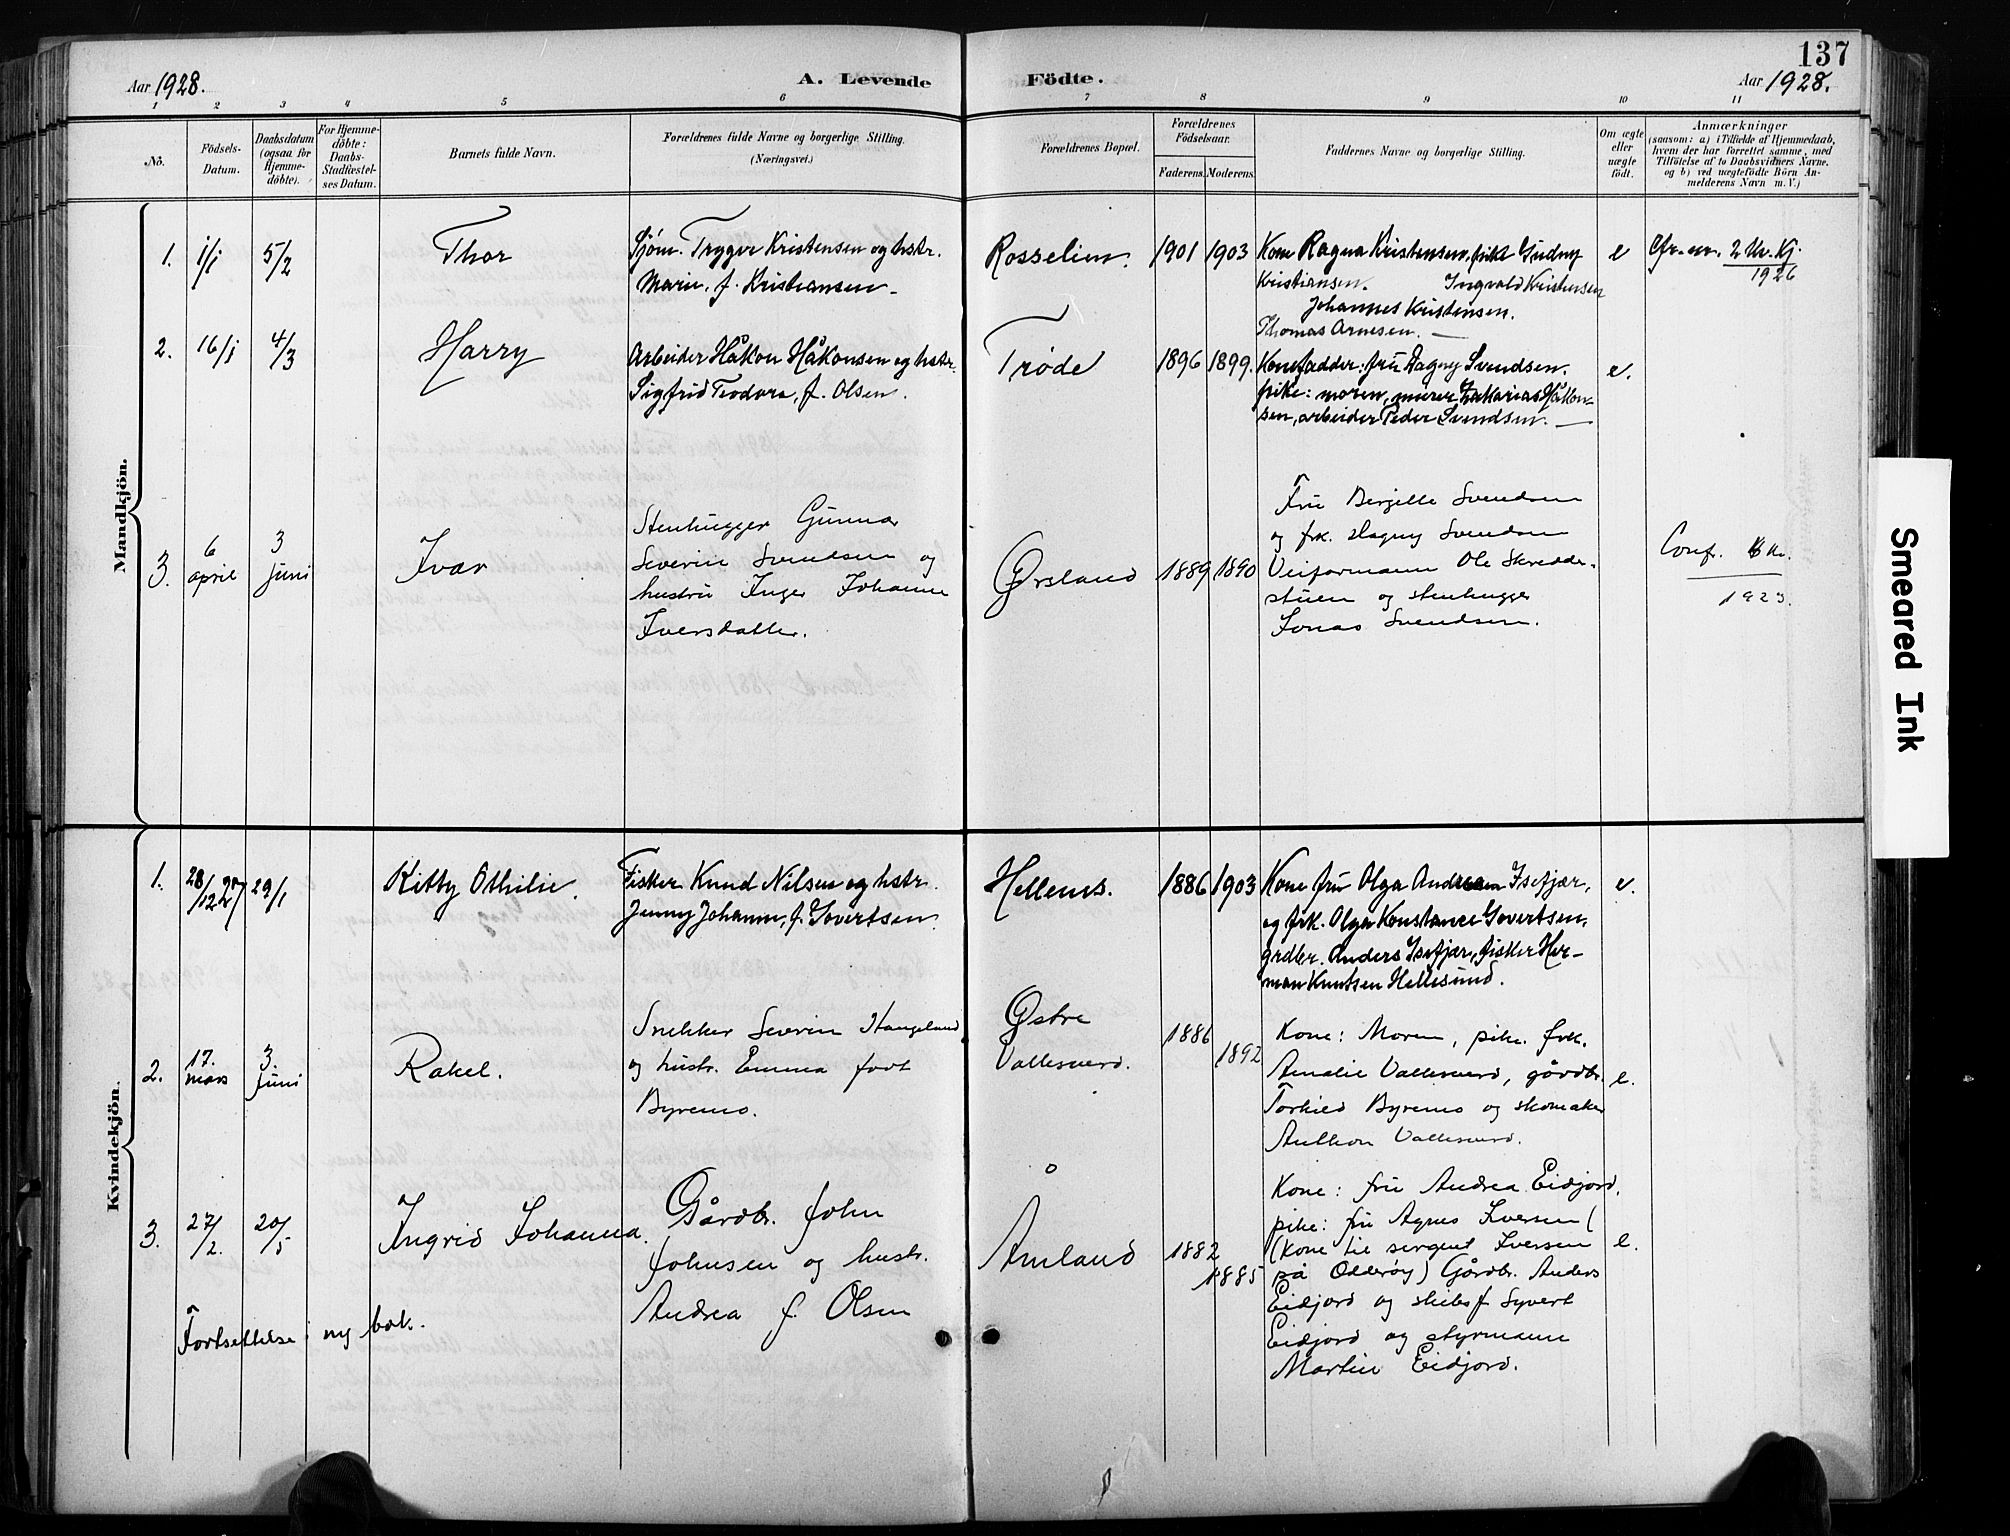 137
Aar 1928.
A. Levende Födte.
Aar 1928.
1 2 3 4 5 6 7 8 9 10 11
Nö.
Födsels-
Datum.
Daabsdatum
(ogsaa for
Hjemme-
döbte).
For Hjemme-
döbte:
Daabs-
Stadfæstel-
ses Datum.
Barnets fulde Navn.
Forældrenes fulde Navne og borgerlige Stilling.
(Næringsvei.)
Forældrenes Bopæl.
Forældrenes
Födselsaar.
Faderens. Moderens.
Faddernes Navne og borgerlige Stilling.
Om ægte
eller
uægte
født.
Anmærkninger
(saasom: a) i Tilfælde af Hjemmedaab,
hvem der har forrettet samme, med
Tilföielse af to Daabsvidners Navne.
og b) ved uægtefödte Börn An-
melderens Navn m. V.)
Mandkjön.
1.
1/1
5/2
Thor
Sjöm. Trygve Kristensen og hstr.
Marie, f. Kristiansen.
Rosselien.
1901 1903
Kone Ragna Kristensen, pike Gudny
Kristiansen. Ingvald Kristensen
Johannes Kristensen.
Thomas Arnesen.
e
Cfr. nr. 2 Kv. Kj.
1926
2.
16/1
4/3
Harry
Arbeider Håkon Håkonsen og hstr.
Sigfrid Teodora, f. Olsen.
Trøde
1896 1899.
Konefadder: fru Dagny Svendsen.
pike: moren, murer Zakarias Håkon-
sen, arbeider Peder Svendsen.
e.
3.
6
april
3
juni
Ivar
Stenhugger Gunnar
Severin Svendsen og
hustru Inger Johanne
Iversdatter.
Ørsland
1889 1890
Fru Berzelle Svendsen
og frk. Dagny Svendsen
Veiformann Ole Skredder-
stuen og stenhugger
Jonas Svendsen.
Confr.
1923.
Kvindekjön.
1.
28/12 27
29/1
Kitty Othilie.
Fisker Knud Nilsen og hstr.
Jenny Johanne, f. Govertsen.
Hellems.
1886 1903
Kone fru Olga Andrea Isefjær,
og frk. Olga Konstance Govertsen,
grdbr. Anders Isefjær, fisker Her-
man Knutsen Hellesund.
e.
2.
17.
mars
3.
juni
Rakel.
Snekker Severin Haugeland
og hustr. Emma født
Byremo.
Østre
Vallesverd.
1886
1892
Kone: Moren, pike. frk.
Amalie Vallesverd, gårdbr.
Torkild Byremo og skomaker
Anthon Vallesverd.
e.
3.
27/2.
20/5
Ingrid Johanna.
Gårdbr. John
Johnsen og hustr.
Andrea f. Olsen
Åmland
1882
1885
Kone: fru Andrea Eidjord.
pike: fru Agnes Iversen (
(kone til sergent Iversen
på Odderøy) Gårdbr. Anders
Eidjord og skibsf. Syvert
Eidjord og styrmann
Martin Eidjord.
e.
Fortsettelse i ny bok.
Smeared Ink